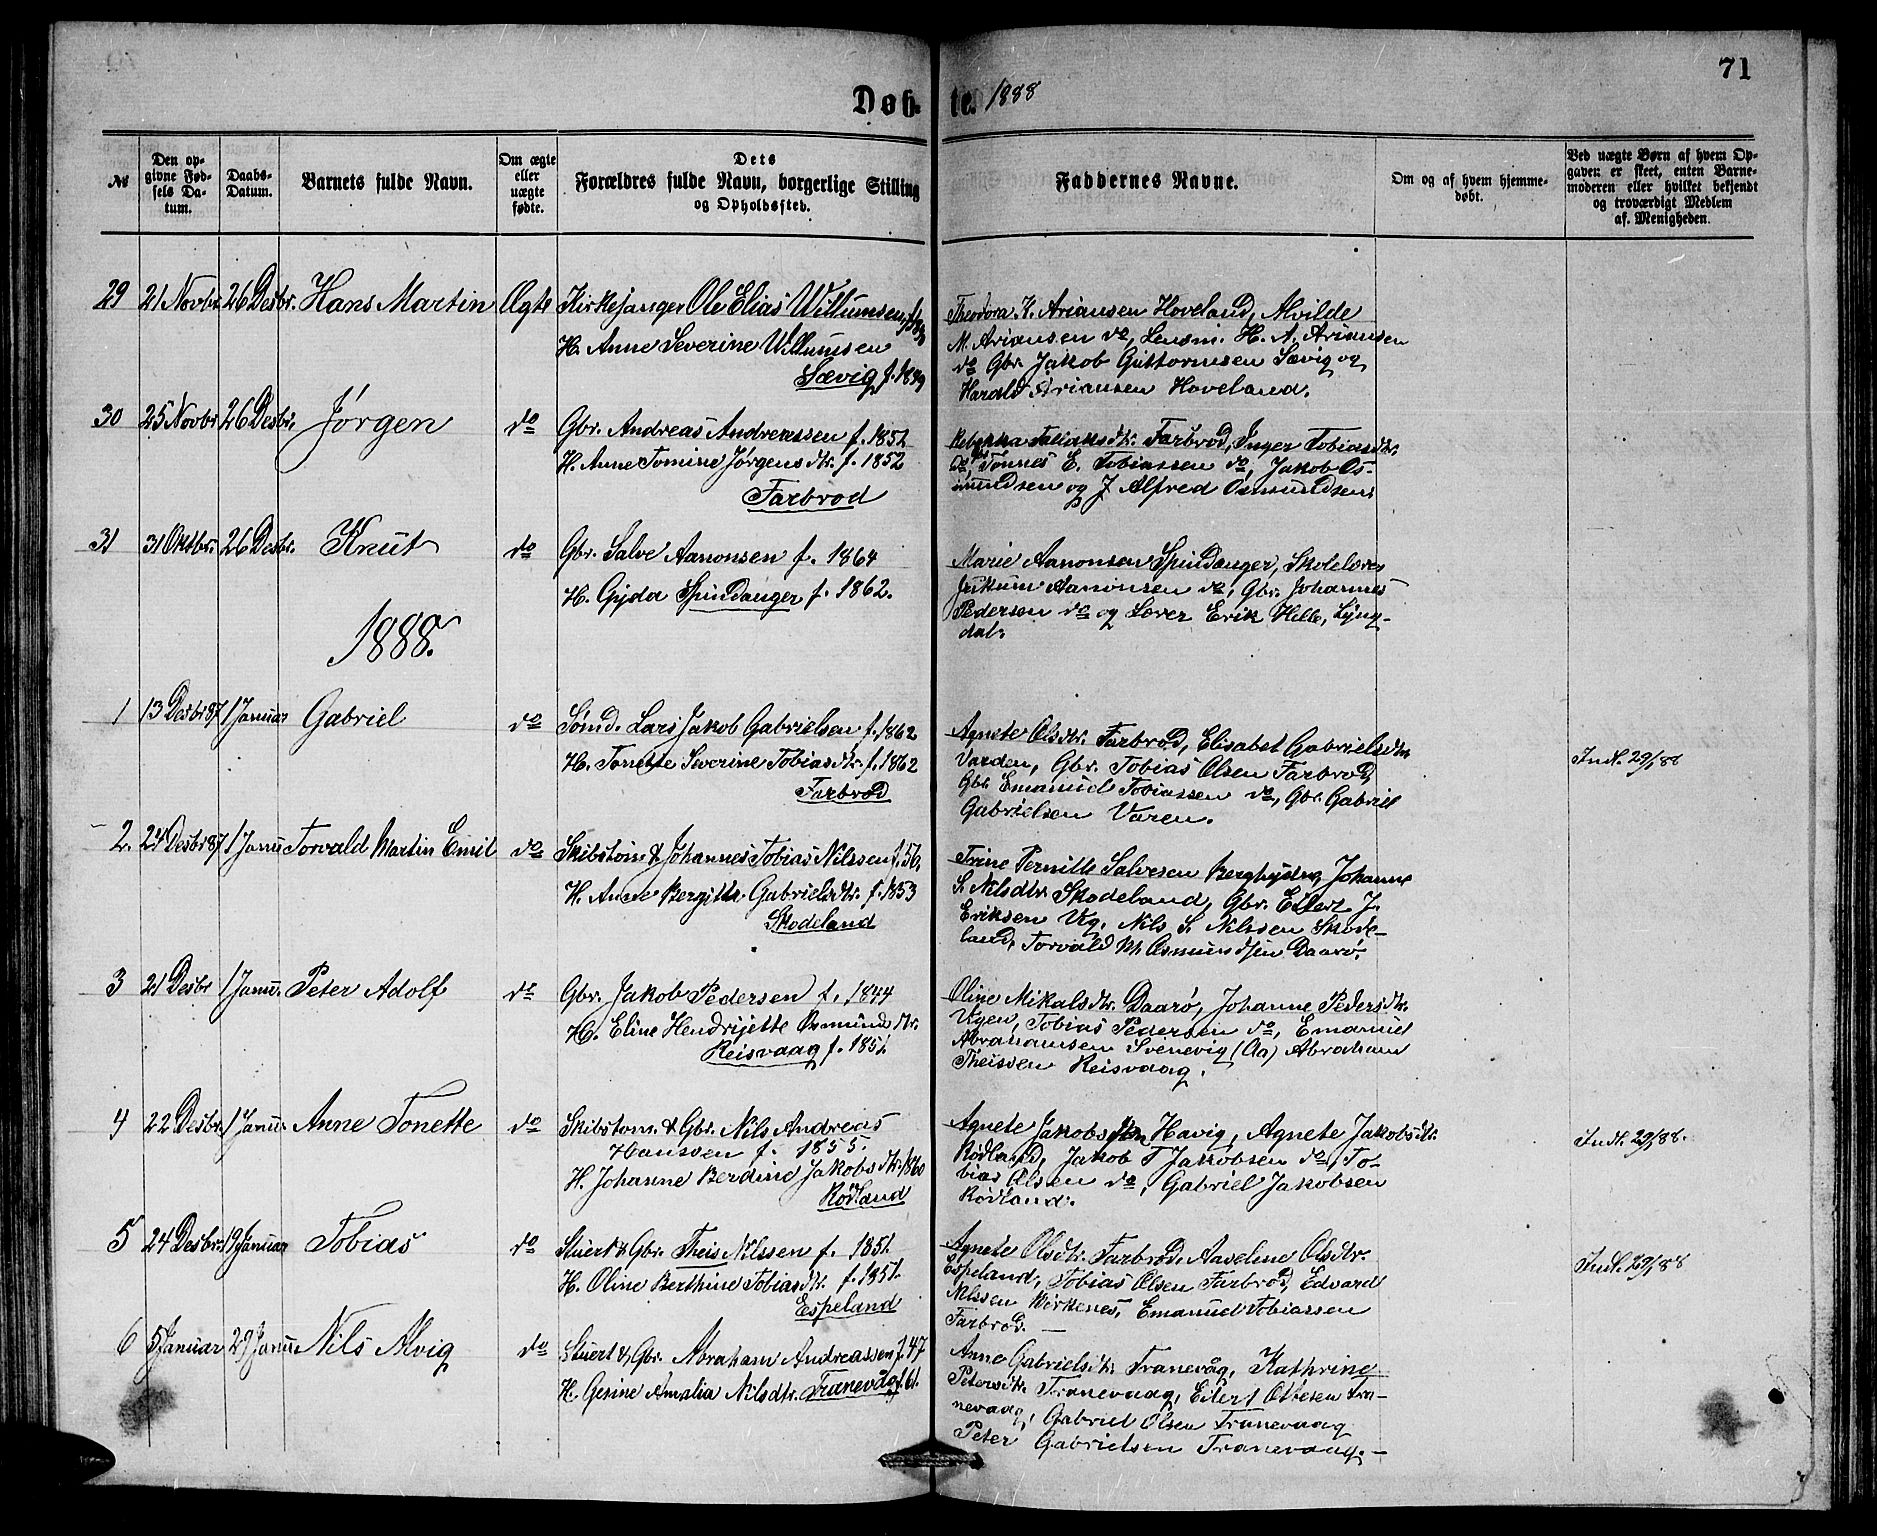 71
Døb- te. 1888
№
Den op-
givne Fød-
sels Da-
tum.
Daabs-
Datum.
Barnets fulde Navn.
Om ægte
eller
uægte
fødte.
Dets
Forældres fulde Navn, borgerlige Stilling
og Opholdssted.
Faddernes Navne.
Om og af hvem hjemme-
døbt.
Ved uægte Børn af hvem Op-
gaven er skeet, enten Barne-
moderen eller hvilket bekjendt
og troværdigt Medlem
af Menigheden.
29 21 Novbr. 26 Desbr. Hans Martin Ægte
Kirkesanger Ole Elias Willumsen
H. Anne Severine Willumsen
Sævig f. 1849
Theodora K. Ariansen Hoveland, Alvilde
M. Ariansen do, Lensm. H. A. Ariansen
do Gbr. Jakob Guttormsen Sævig og
Harald Ariansen Hoveland.
30 25 Novbr 26 Desbr. Jørgen do
Gbr. Andreas Andreassen f. 1851
H. Anne Tomine Jørgensdtr. f. 1852
Farbrod
Tobiasdtr. Farbrod, Inger Tobiasdtr.
do, Tønnes E. Tobiassen do, Jakob Os-
mundsen og J Alfred Osmundsen
31 31 Oktbr. 26 Desbr. Knut do
Gbr. Salve Aanonsen f. 1864
H. Gyda Spindanger f. 1862.
Marie Aanonsen Spindanger, Skolelærer
Jukum Aanonsen do, Gbr. Johannes
Pedersen do og Lærer Erik Helle, Lyng-
dal.
1888.
1 13 Desbr 87 1 Januar Gabriel do
Sømd. Lars Jakob Gabrielsen f. 1862
H. Tonette Severine Tobiasdtr. f. 1862
Farbrod
Agnete Olsdtr. Farbrod, Elisabet Gabrielsdtr.
Varden, Gbr. Tobias Olsen Farbrod,
Gbr Emanuel Tobiassen do, Gbr. Gabriel
Gabrielsen Varen.
Indl. 29/1 88
2. 24 Desbr 87 1 Janu Torvald Martin Emil do
Skibstøm. & Johannes Tobias Nilssen f. 56.
H. Anne Bergitte Gabrielsdtr. f. 1853
Skodeland
Trine Pernille Salvesen Berghyden, Johanne
S. Nilsdtr. Skodeland, Gbr. Eilert J.
Eriksen Vig, Nils S. Nilssen Skode-
land, Torvald M. Osmundsen Daarø.
3 21 Desbr 1 Janu. Peter Adolf do
Gbr. Jakob Pedersen f. 1844
H. Eline Hendrijette Osmundsdtr.
Reisvaag f. 1851
Oline Mikalsdtr. Daarø, Johanne Pedersdtr.
Vigen, Tobias Pedersen do, Emanuel
Abrahamsen Svenevig (Aa) Abraham
Theissen Reisvaag.
4 22 Desbr. 1 Janu. Anne Tonette do
Skibstøm. & Gbr. Nils Andreas
Hanssen f. 1855.
H. Johanne Berdine Jakobsdtr. 1860
Rødland
Agnete Jakobsen Havig, Agnete Jakobsdtr.
Rødland, Jakob T Jakobsen do, To-
bias Olsen do, Gabriel Jakobsen
Rødland.
Indl. 29/1 88.
5 24 Desbr. 19 Januar Tobias do
Stuert & Gbr. Theis Nilssen f. 1851.
H. Oline Berthine Tobiasdtr. f. 1851.
Espeland
Agnete Olsdtr. Farbrod, Aaseline Olsdtr.
Espeland, Tobias Olsen Farbrod, Edvard
Nilssen Birkenes, Emanuel Tobiassen
Farbrod.
Indl. 29/1 88
6 5 Januar 29 Janu Nils Alvig do
Stuert & Gbr. Abraham Andreassen f. 47
H. Gesine Amalia Nilsdtr. Tranevåg f. 61.
Anne Gabrielsdtr. Tranevåg, Kathrine
Petersdtr. Tranevaag, Eilert Ottesen Tra-
nevaag, Gabriel Olsen Tranevaag
Peter Gabrielsen Tranevaag.